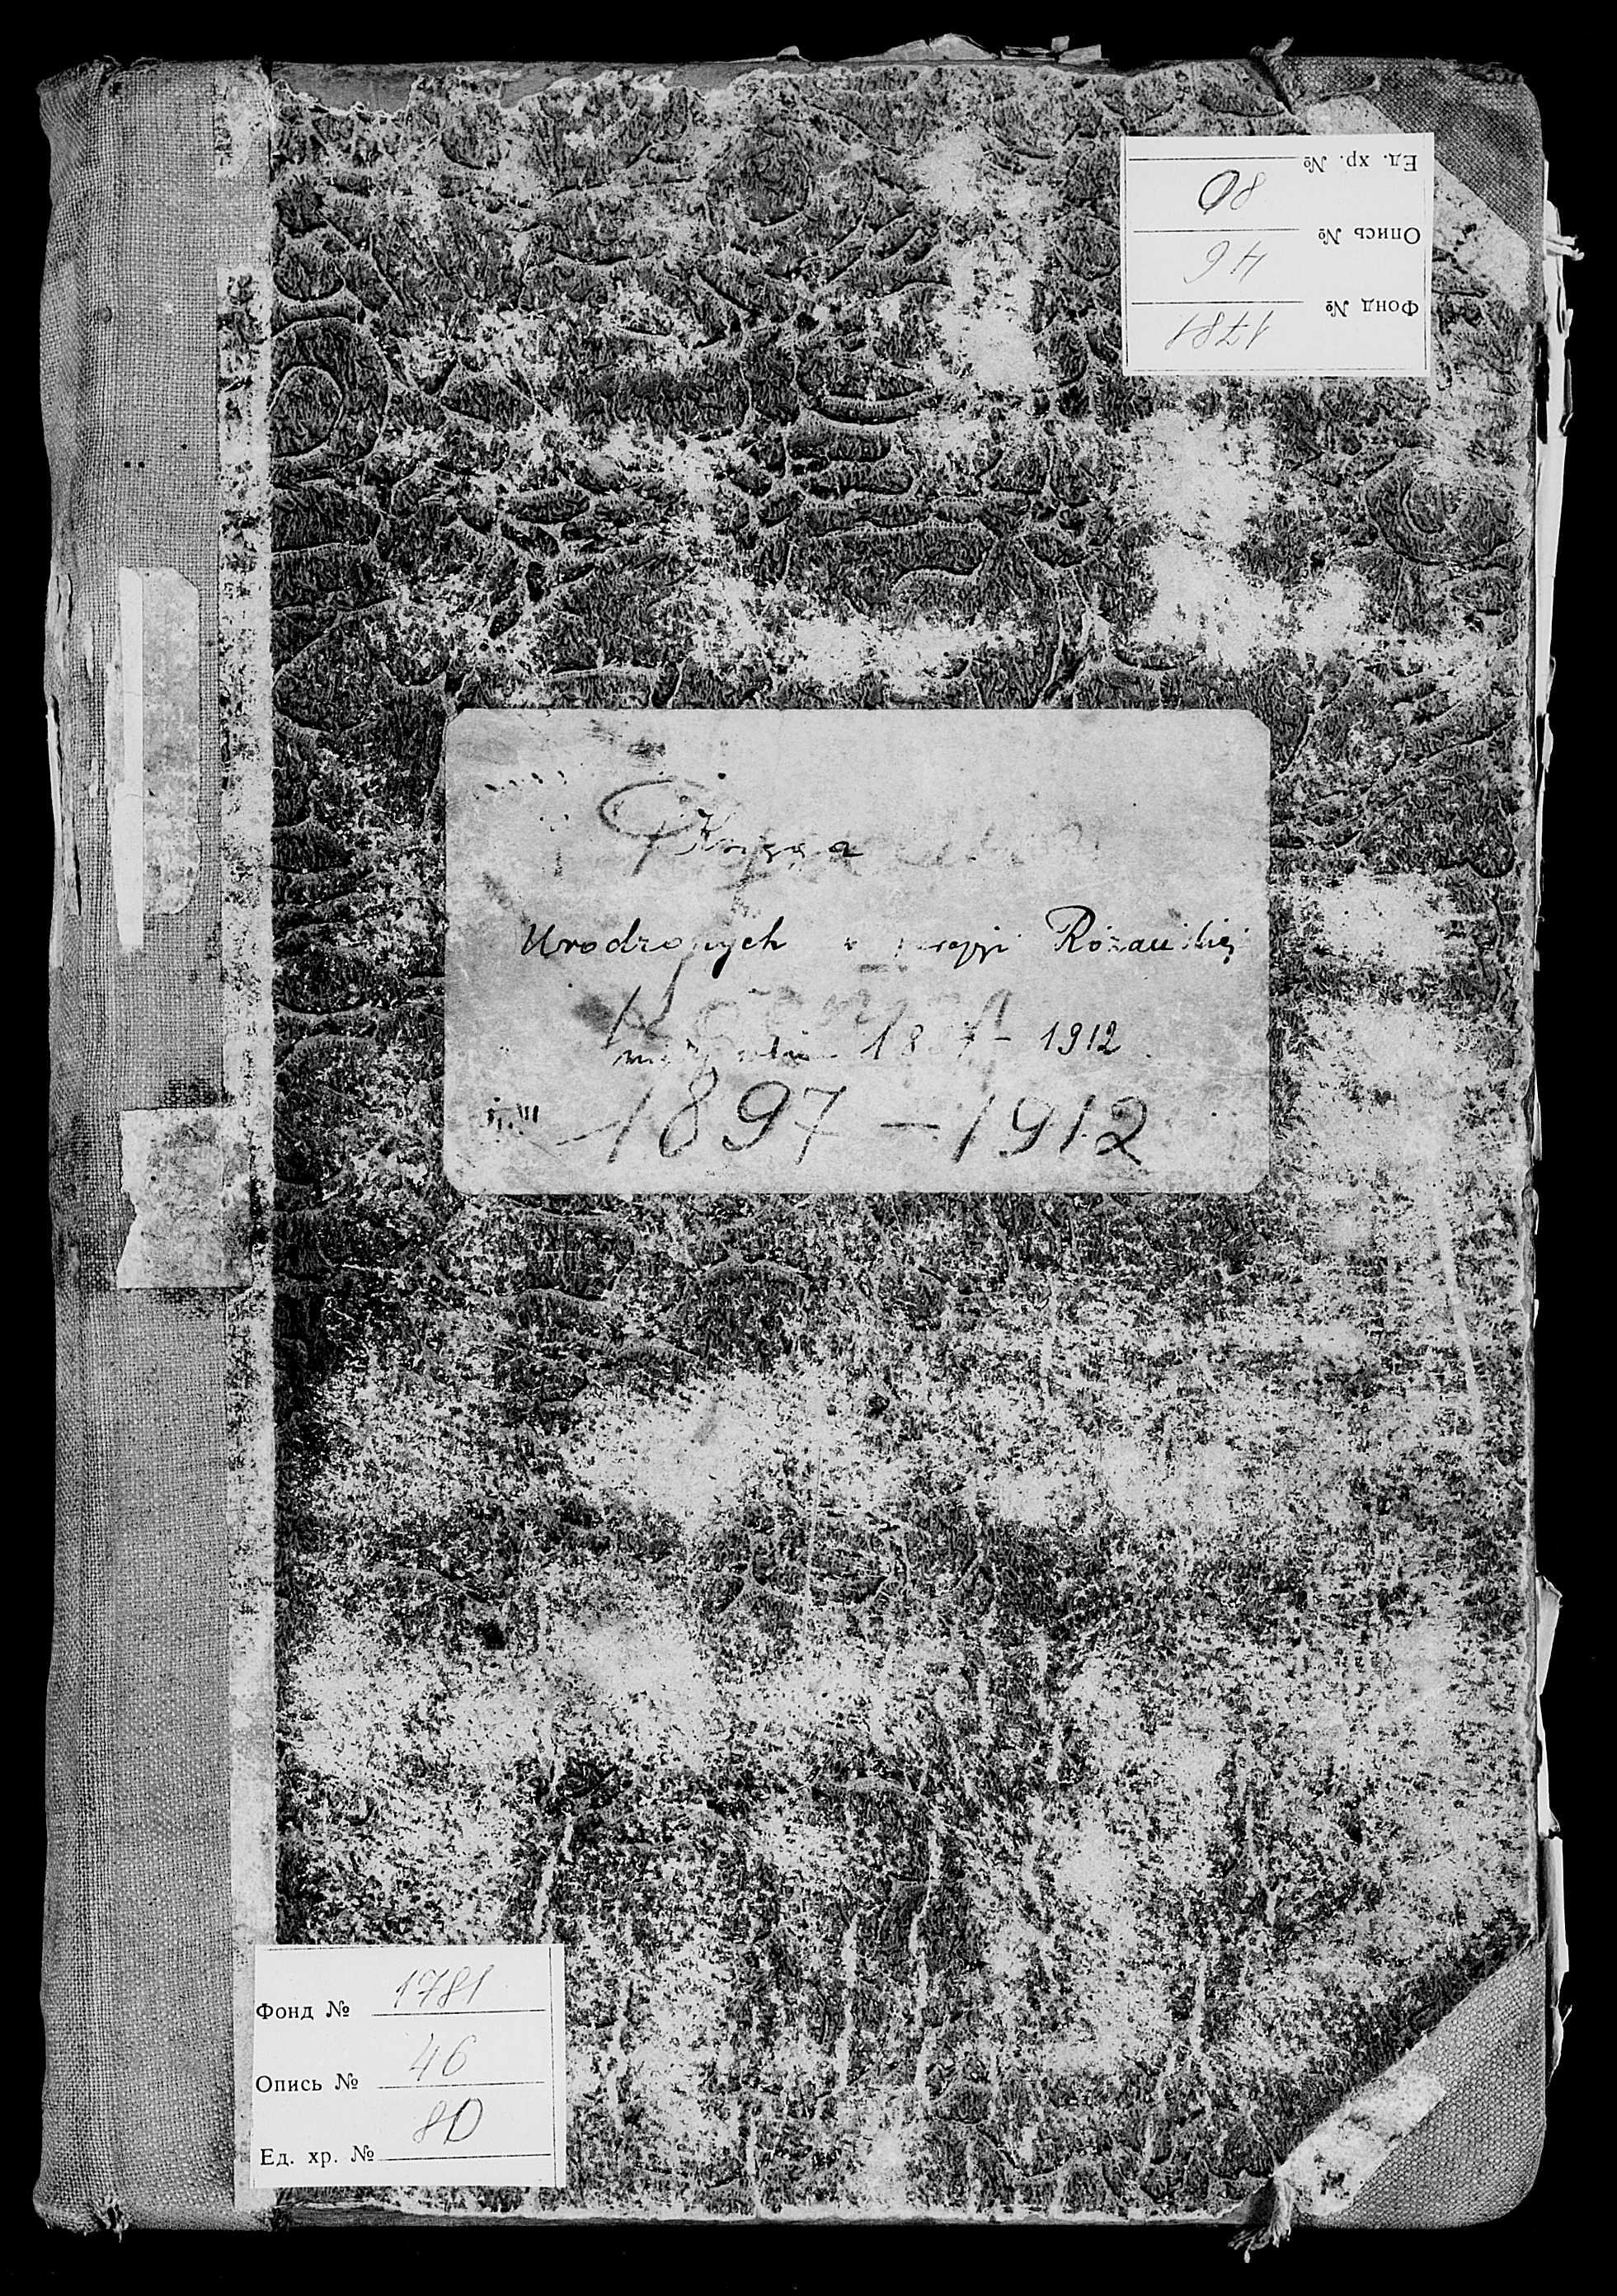 Ед. хр. № 80
Опись № 46
Фонд № 1781
Księga
Urodzonych w parafji Różańskiej
1897 - 1912
1897 - 1912
Фонд № 1781
Опись № 46
Ед. хр. № 80